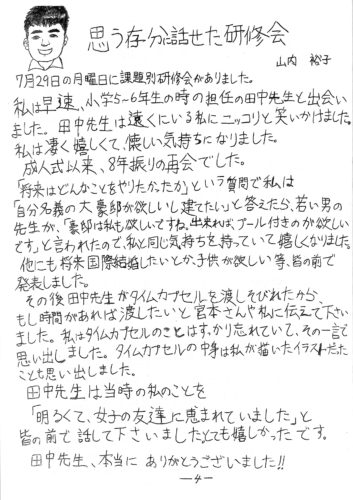 思う存分に話せた研修会
山内 裕子
7月29の月曜日に課題別研修会がありました。
私は早速、小学5~6年生の時の担任の田中先生と出会い
ました。田中先生は遠くにいる私にニッコリと笑いかけました。
私は凄く嬉しくて、懐しい気持ちになりました。
成人式以来、8年振りの再会でした。
「将来はどんなことをやりたかったか」という質問で私は
「自分名義の大豪邸が欲しいし建てたい」と答えたら、若い男の
先生が、「豪邸は私も欲しいですね。出来れば、プール付きのが欲しい
です」と言われたので、私と同じ気持ちを持っていて嬉しくなりました。
他にも将来国際結婚したいとか、子供が欲しい等、皆の前で
発表しました。
その後田中先生がタイムカプセルを渡しそびれたから、
もし時間があれば渡したいと宮本さんや私に伝えて下さい
ました。私はタイムカプセルのことはすっかり忘れていて、その一言で
思い出しました。タイムカプセルの中身は私が描いたイラストだった
ことも思い出しました。
田中先生は当時の私のことを
「明るくて、女子の友達に恵まれていました」と
皆の前で話して下さいましたとても嬉しかったです。
田中先生、本当にありがとうございました!!
—4—